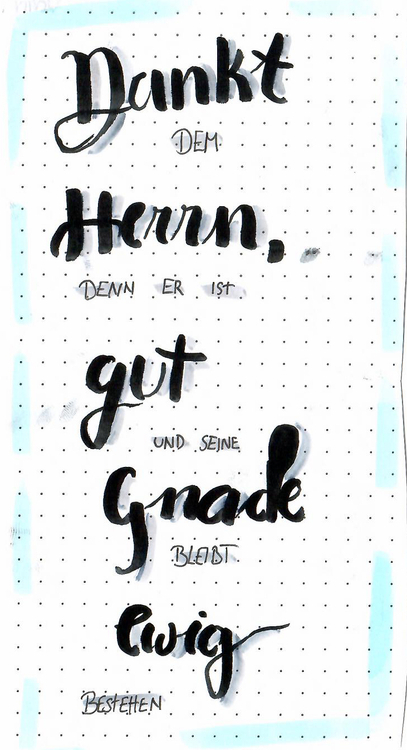 Dankt
DEM
Herrn,
DENN ER ist
gut
UND SEINE
Gnade
BLEIBT
ewig
BESTEHEN